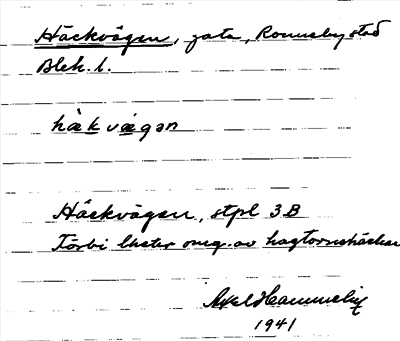 Häckvägen, gata, Ronneby stad
Blek. l.
hä̀kvægən
Häckvägen, stpl 3B
Förbi omg. av hagtornshäckar
Axel
1941